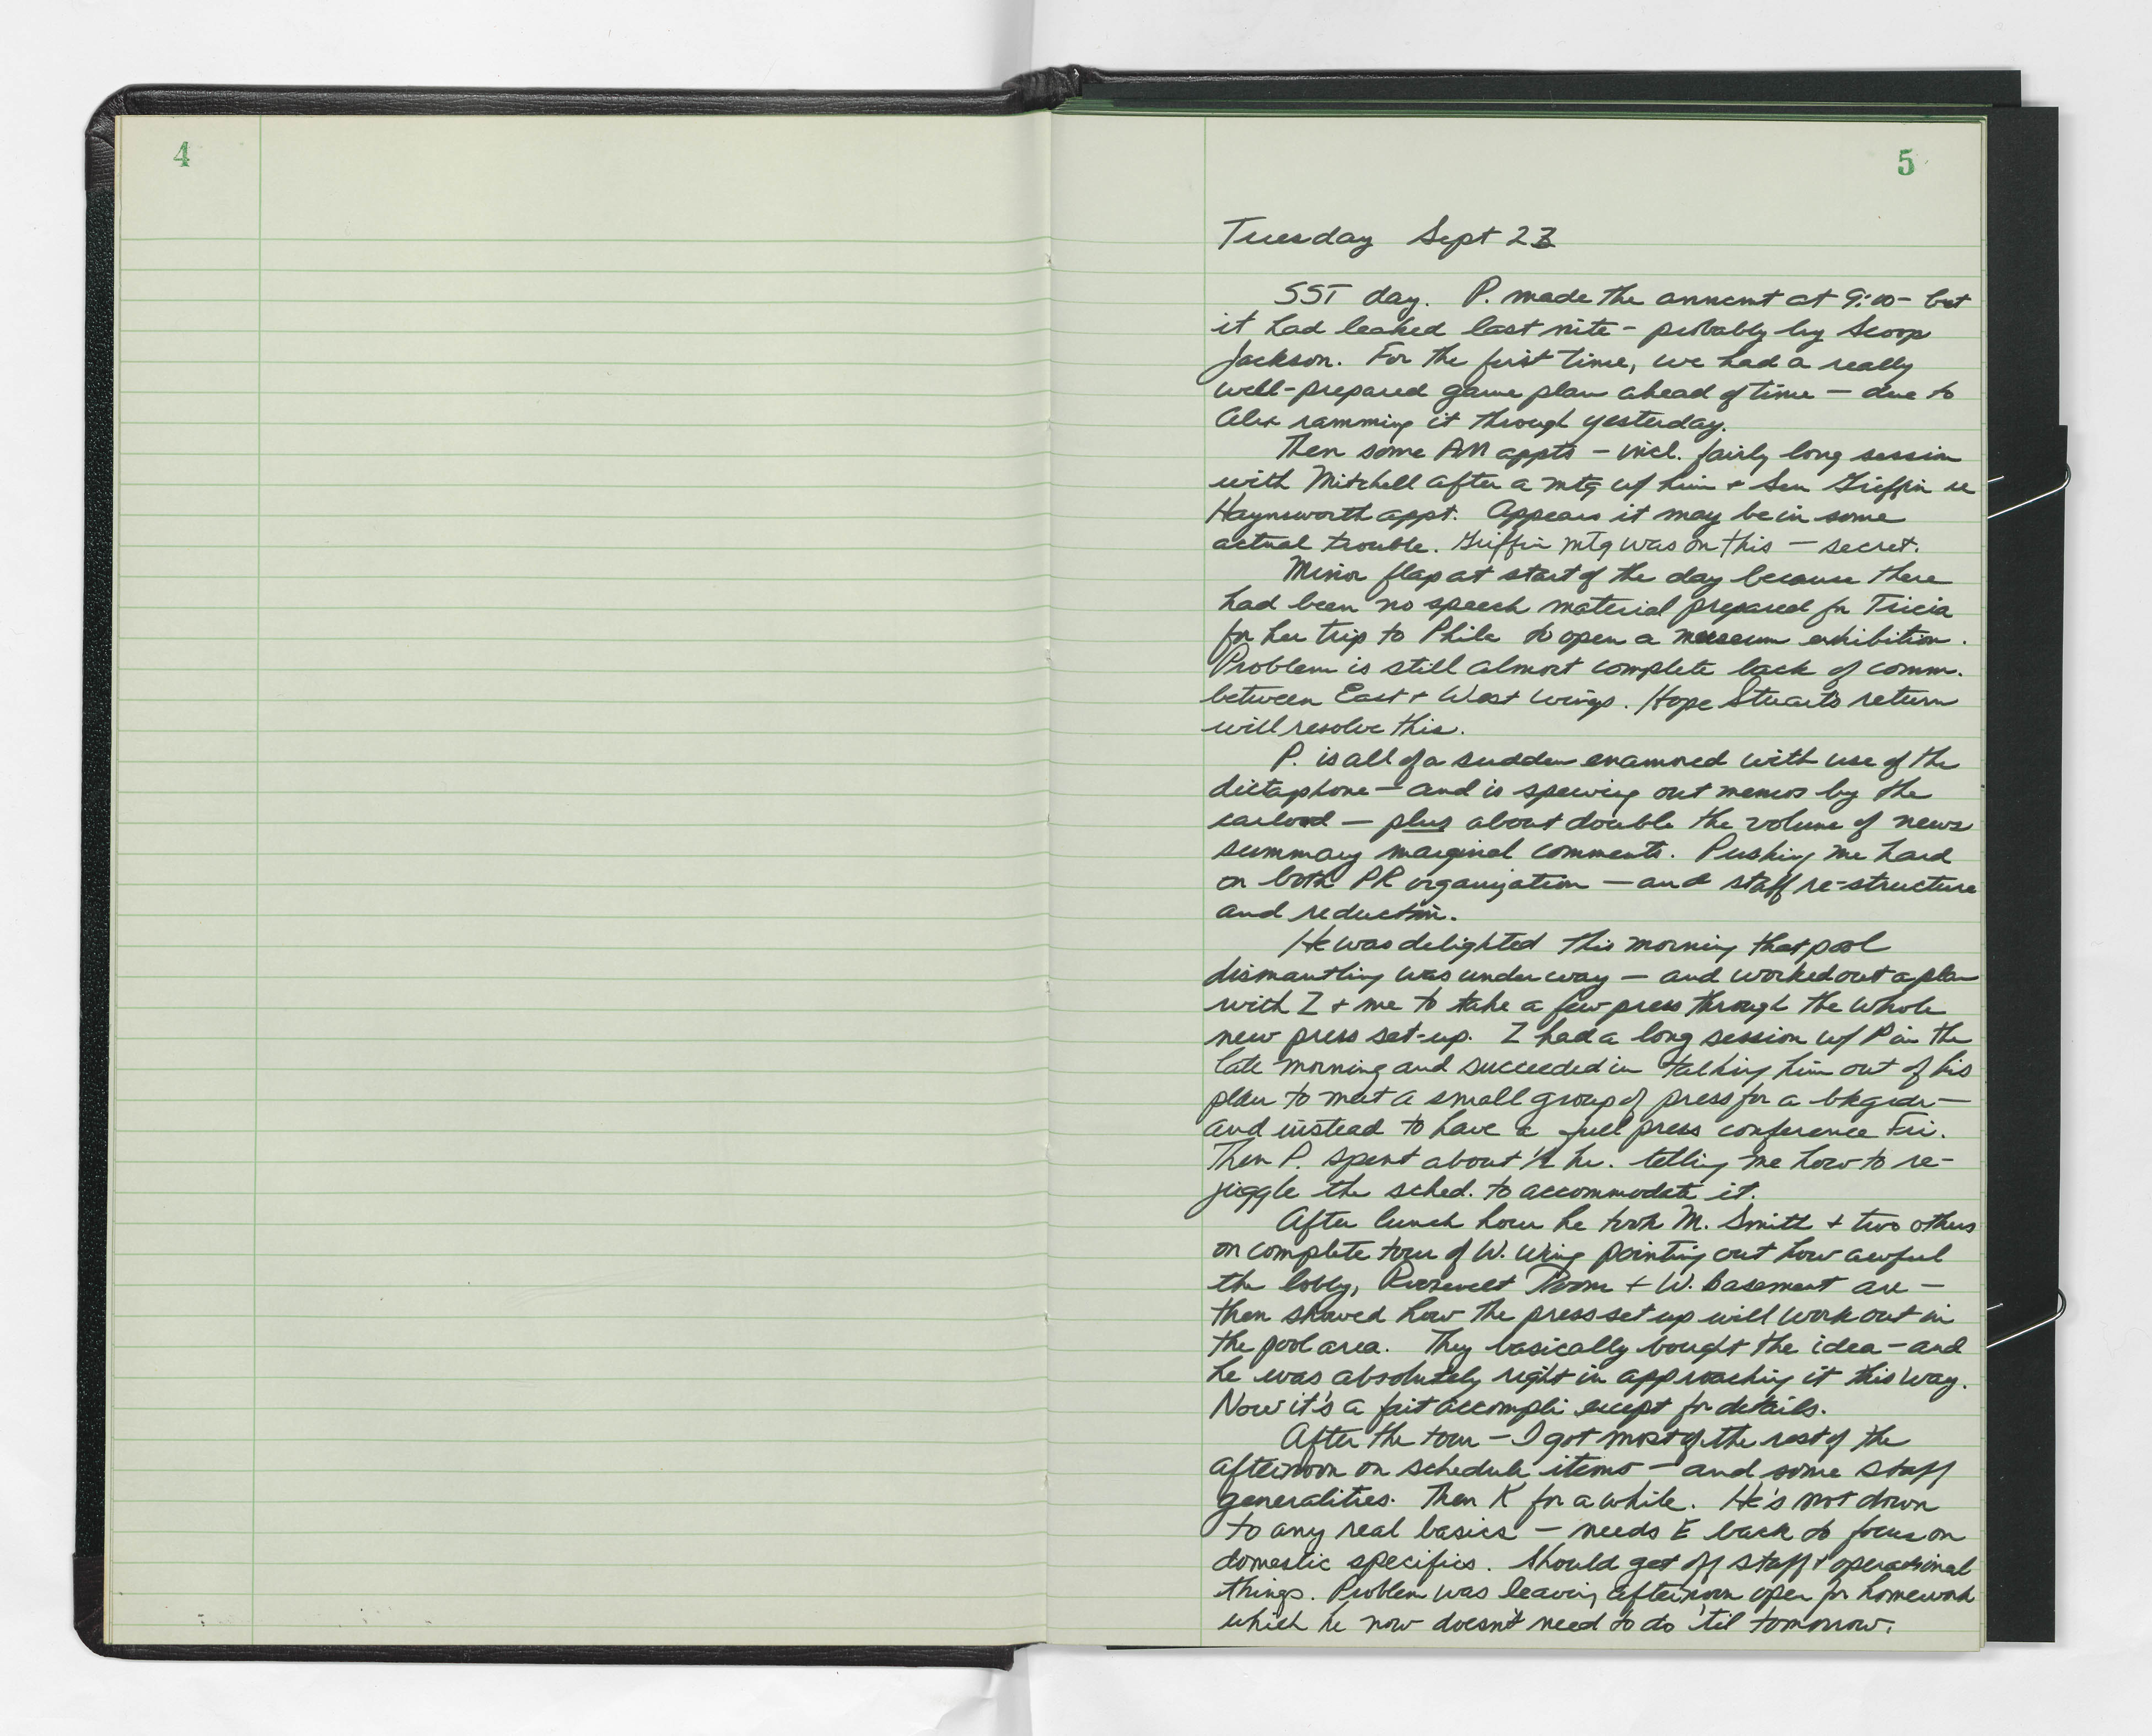 4
5
Tuesday Sept 23
SST day. P. made the anncmt at 9:00 - but
it had leaked last nite - probably by Scoop
Jackson. For the first time, we had a really
well-prepared game plan ahead of time — due to
Alex ramming it through yesterday.
Then some AM appts - incl. fairly long session
with Mitchell after a mtg w/ him + Sen Griffin re
Haynsworth appt. Appears it may be in some
actual trouble. Griffin mtg was on this — secret.
Minor flap at start of the day because there
had been no speech material prepared for Tricia
for her trip to Phila to open a museum exhibition.
Problem is still almost complete lack of comm.
between East + West wings. Hope Stuart's return
will resolve this.
P. is all of a sudden enamored with use of the
dictaphone - and is spewing out memos by the
carload — plus about double the volume of news
summary marginal comments. Pushing me hard
on both PR organization — and staff re-structure
and reduction.
He was delighted this morning that pool
dismantling was under way — and worked out a plan
with Z + me to take a few press through the whole
new press set-up. Z had a long session w/ P in the
late morning and succeeded in talking him out of his
plan to meet a small group of press for a bkgrdr —
and instead to have a full press conference Fri.
Then P. spent about ½ hr. telling me how to re-
juggle the sched. to accommodate it.
After lunch hour he took M. Smith + two others
on complete tour of W. Wing pointing out how awful
the lobby, Roosevelt Room + W. basement are —
then showed how the press set up will work out in
the pool area. They basically bought the idea - and
he was absolutely right in approaching it this way.
Now it's a fait accompli except for details.
After the tour — I got most of the rest of the
afternoon on schedule items — and some staff
generalities. Then K for a while. He's not down
to any real basics — needs E back to focus on
domestic specifics. Should get off staff + operational
things. Problem was leaving afternoon open for homework
which he now doesn't need to do 'til tomorrow.